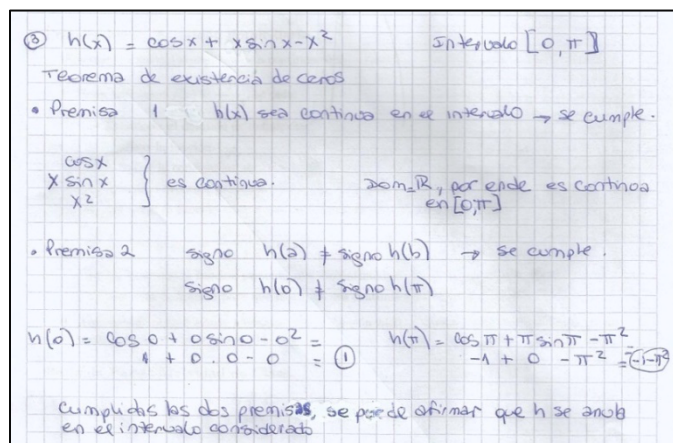 ③ h(x) = cosx + xsinx - x² Intervalo [0, π]
Teorema de existencia de ceros
• Premisa 1 h(x) sea continua en el intervalo → se cumple.
cosx
x sinx } es continua. Dom=ℝ, por ende es continua
x² en [0,π]
• Premisa 2 signo h(a) ≠ signo h(b) → se cumple.
signo h(0) ≠ signo h(π)
h(0) = cos 0 + 0 sin 0 - 0² = h(π) = cos π + π sin π - π² =
1 + 0 . 0 - 0 = 1 -1 + 0 - π² = -1-π²
Cumplidas las dos premisas, se puede afirmar que h se anula
en el intervalo considerado